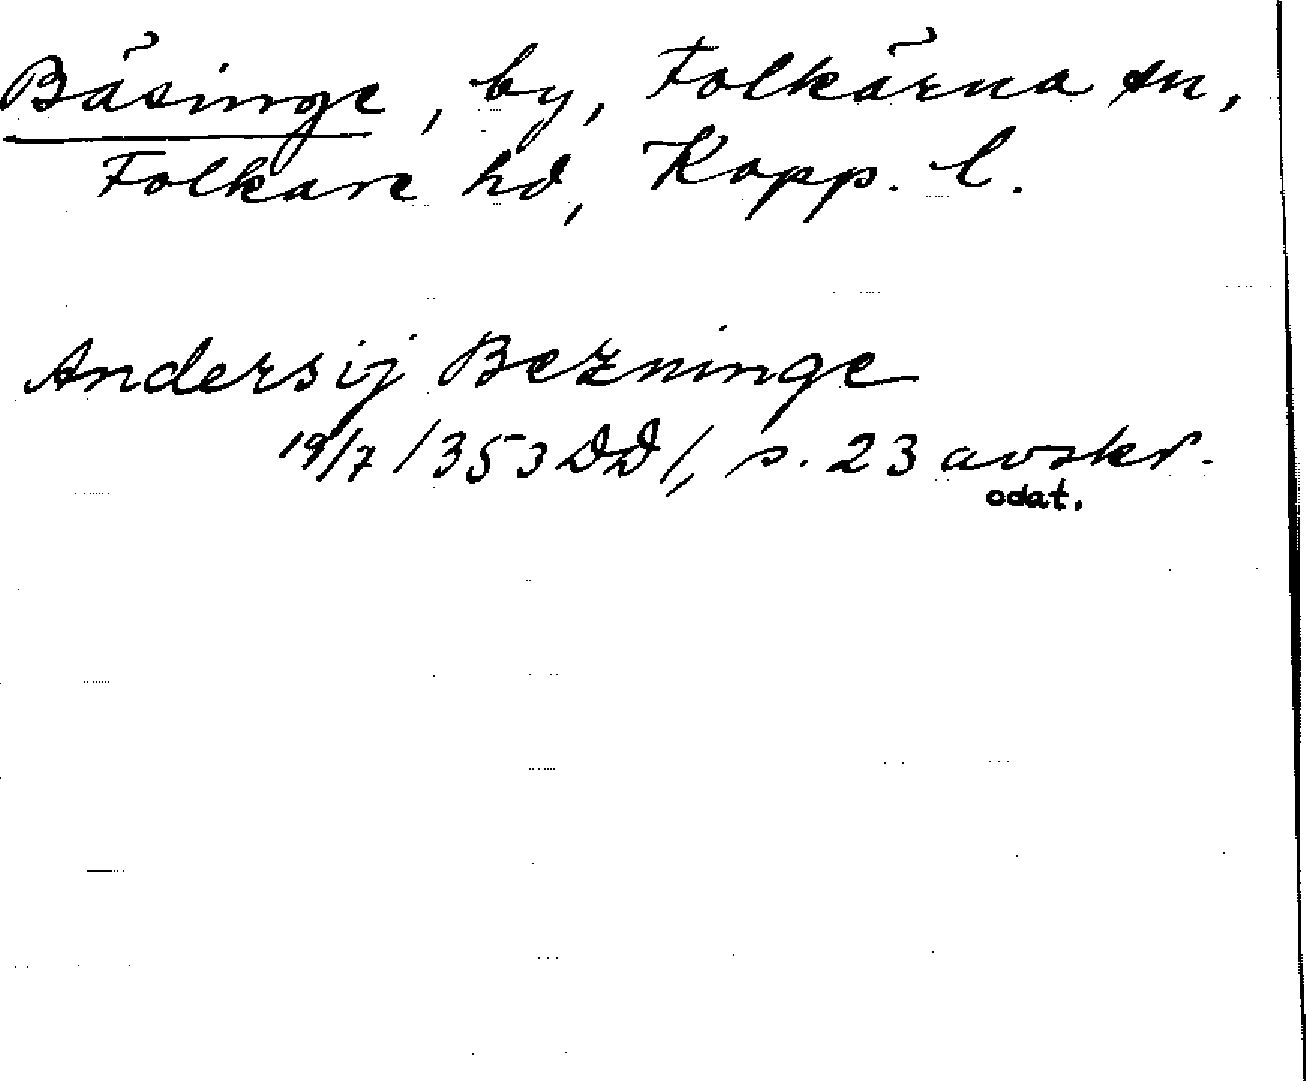 Bäsinge, by, Folkärna sn,
Folkare hd, Kopp. l.
Andersij Bezninge
19/7 /1353 DD/, s. 23 avskr.
odat.